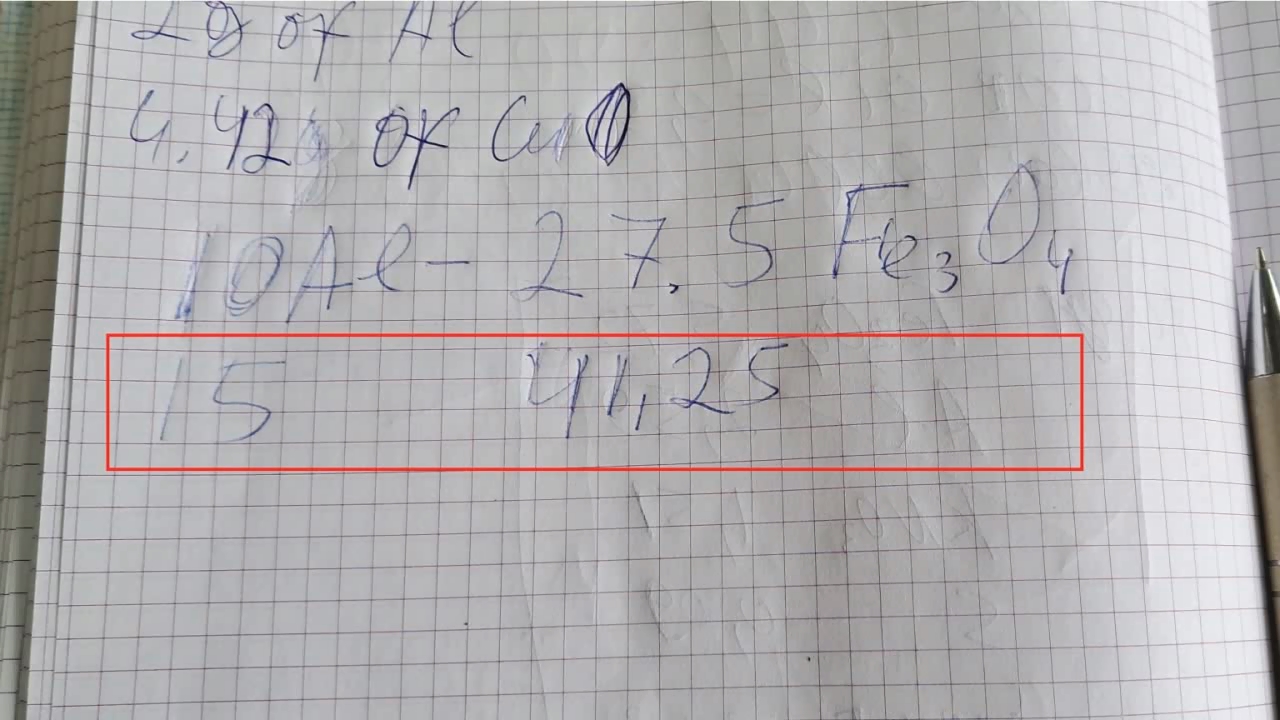 2g of Al
4,42 of Cu
10Al - 27,5 Fe₃O₄
15 41,25